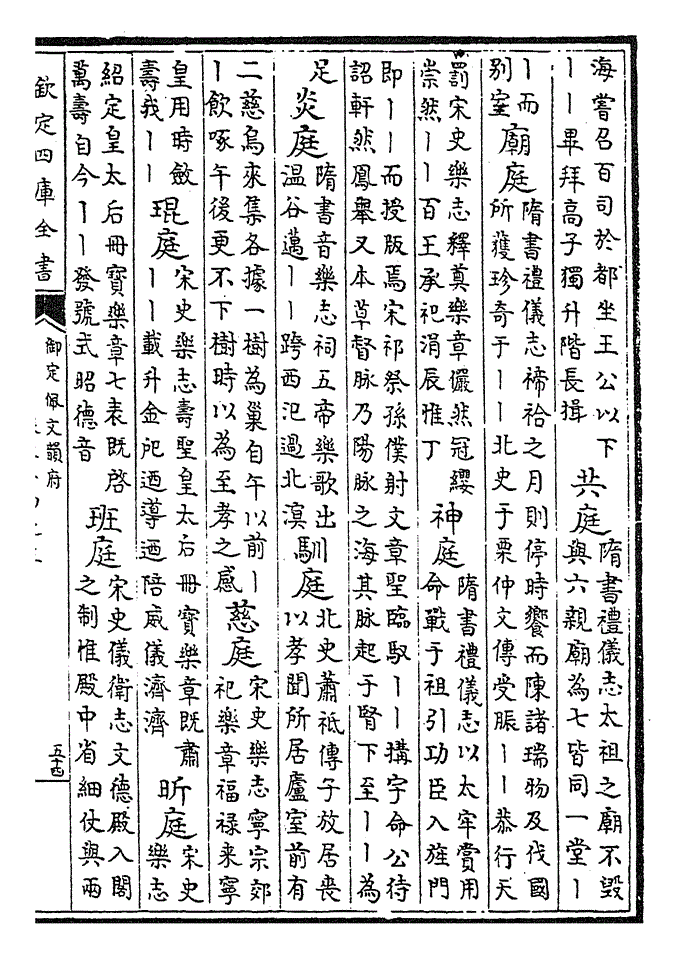 海嘗召百司於都坐王公以下
丨丨畢拜高子獨升階長揖
共庭
隋書禮儀志太祖之廟不毀
與六親廟為七皆同一堂丨
丨而
別室
廟庭
隋書禮儀志禘祫之月則停時饗而陳諸瑞物及伐國
所獲珍奇于丨丨北史于栗仲文傳受脤丨丨恭行天
罰宋史樂志釋奠樂章儼然冠纓
崇然丨丨百王承祀涓辰惟丁
神庭
隋書禮儀志以太牢賞用
命戰于祖引功臣入旌門
即丨丨而授版焉宋祁祭孫僕射文章聖臨馭丨丨搆字命公待
詔軒然鳳舉又本草督脉乃陽脉之海其脉起于腎下至丨丨為
足
炎庭
隋書音樂志祠五帝樂歌出
溫谷邁丨丨跨西汜過北溟
馴庭
北史蕭祗傳子放居喪
以孝聞所居廬室前有
二慈烏來集各據一樹為巢自午以前丨
丨飲啄午後更不下樹時以為至孝之感
慈庭
宋史樂志寧宗郊
祀樂章福禄来寧
皇用時斂
壽我丨丨
琨庭
宋史樂志壽聖皇太后冊寶樂章既肅
丨丨載升金戺迺導迺陪威儀濟濟
昕庭
宋史
樂志
紹定皇太后冊寶樂章七表既啓
萬壽自今丨丨發號式昭德音
班庭
宋史儀衛志文德殿入閤
之制惟殿中省細仗與兩
欽定四庫全書
御定佩文韻府
五十四